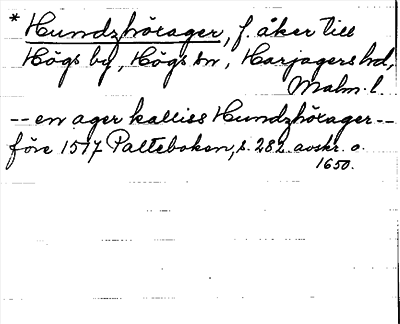 * Hundzhötager, f. åker till
Högs by, Högs sn, Harjagers hd,
Malm. l.
-- en ager kalliss Hundzhötager --
före 1517 Palteboken, s. 282 avskr. o.
1650.